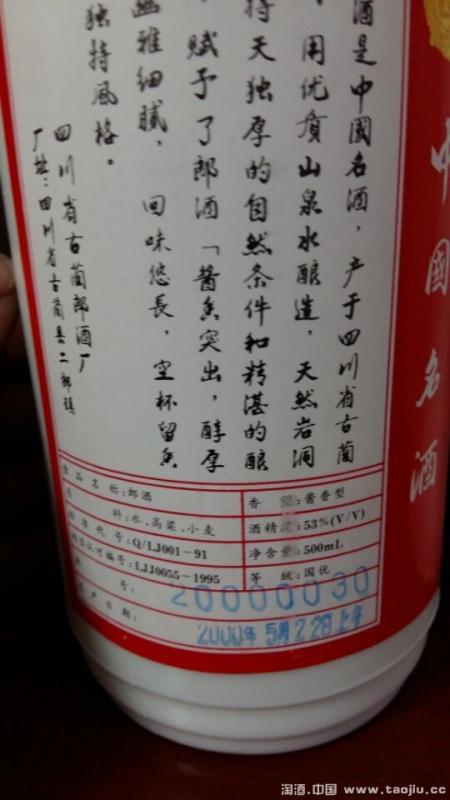 酒是中國名酒，产于四川省古蔺
用优质山泉水酿造，天然岩洞
特天独厚的自然条件和精湛的酿
，赋予了郎酒「酱香突出，醇厚
幽雅细腻，回味悠長，空杯留香
独特风格。
四川省古蔺郎酒厂
厂址：四川省古蔺县二郎镇
中國名酒
食品名称:郎酒
料:水、高粱、小麦
标准代号:Q/LJ001-91
认可编号:LJJ0055-1995
号:
生产日期:
香型:酱香型
酒精度:53%(V/V)
净含量:500mL
等级:国优
20000030
2000年5月228上午
淘酒.中国 www.taojiu.cc